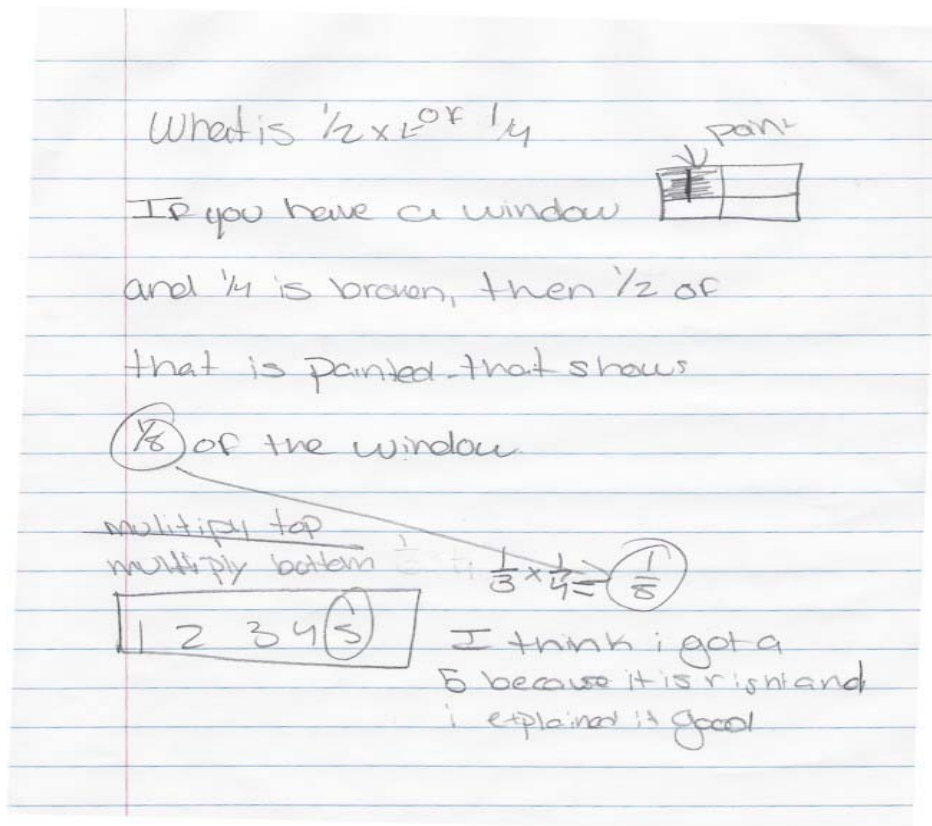 What is 1/2 x or 1/4
pain
If you have a window
and 1/4 is broken, then 1/2 of
that is painted that shows
1/8 of the window
mulitiply top
multiply bottom
1/3 x 1/4 = 1/8
1 2 3 4 5
I think i got a
5 because it is right and
i explained it good